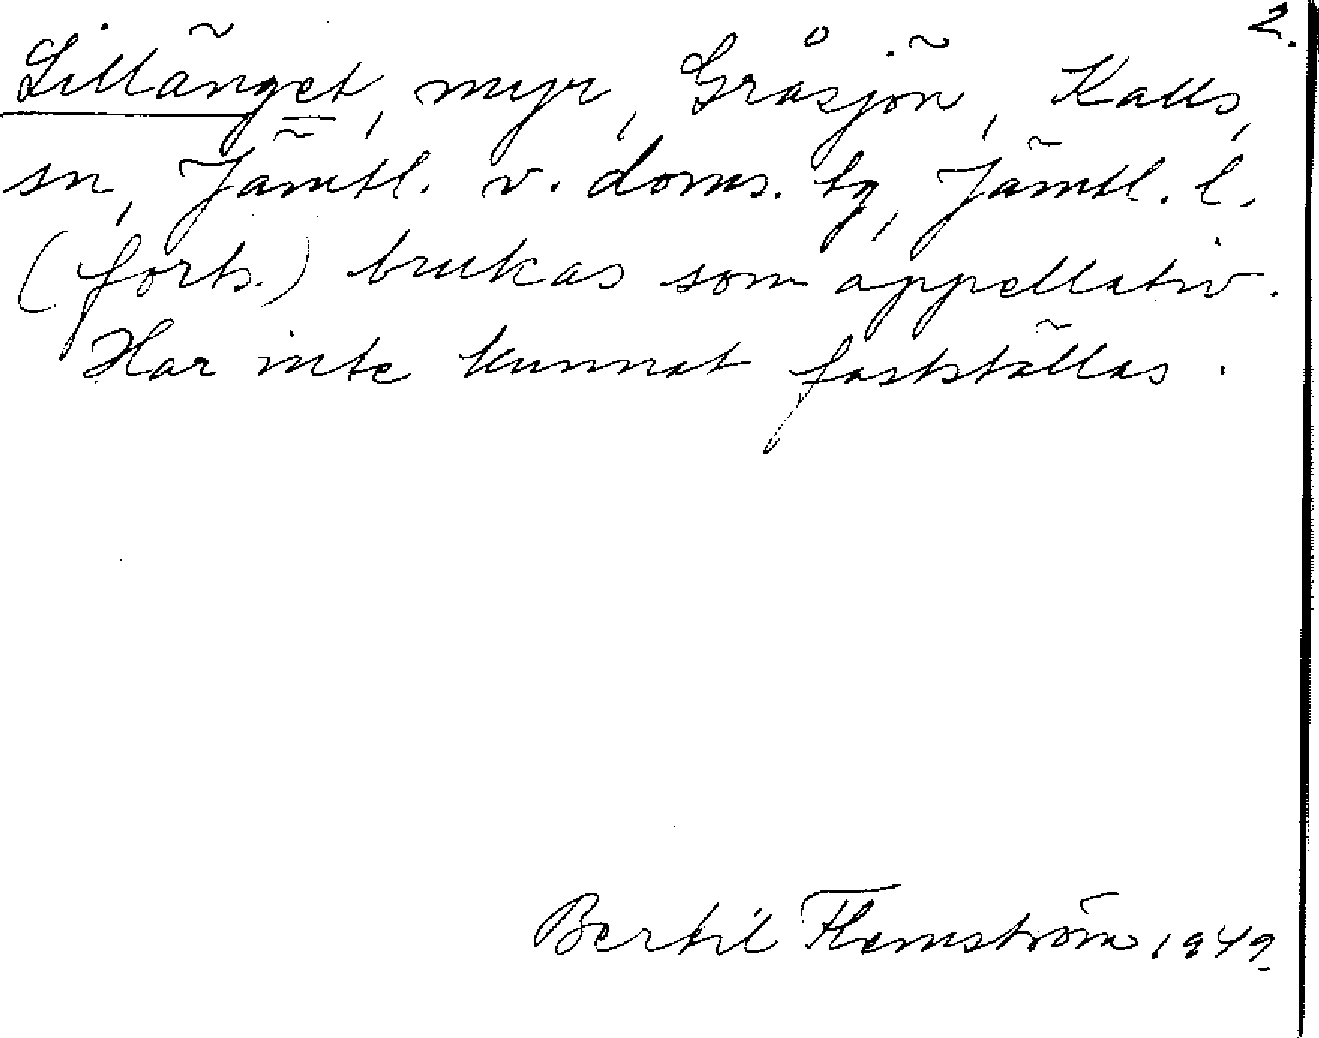 2.
Lillänget, myr, Gråsjön, Kalls,
sn, Jämtl. v. doms. tg, Jämtl. l.
(forts.) brukas som appellativ.
Har inte kunnat fastställas.
Bertil Flemström, 1949.